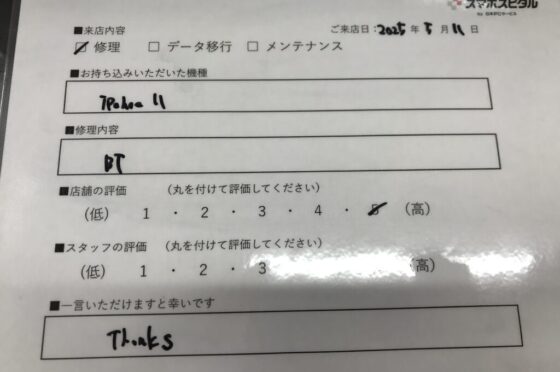 スマホスピタル
■来店内容
ご来店日：2025年 5月 11日
☑ 修理 □ データ移行 □ メンテナンス
■お持ち込みいただいた機種
iPhone 11
■修理内容
BT
■店舗の評価 （丸を付けて評価してください）
（低） 1 ・ 2 ・ 3 ・ 4 ・ 5 （高）
■スタッフの評価 （丸を付けて評価してください）
（低） 1 ・ 2 ・ 3 （高）
■一言いただけますと幸いです
Thanks